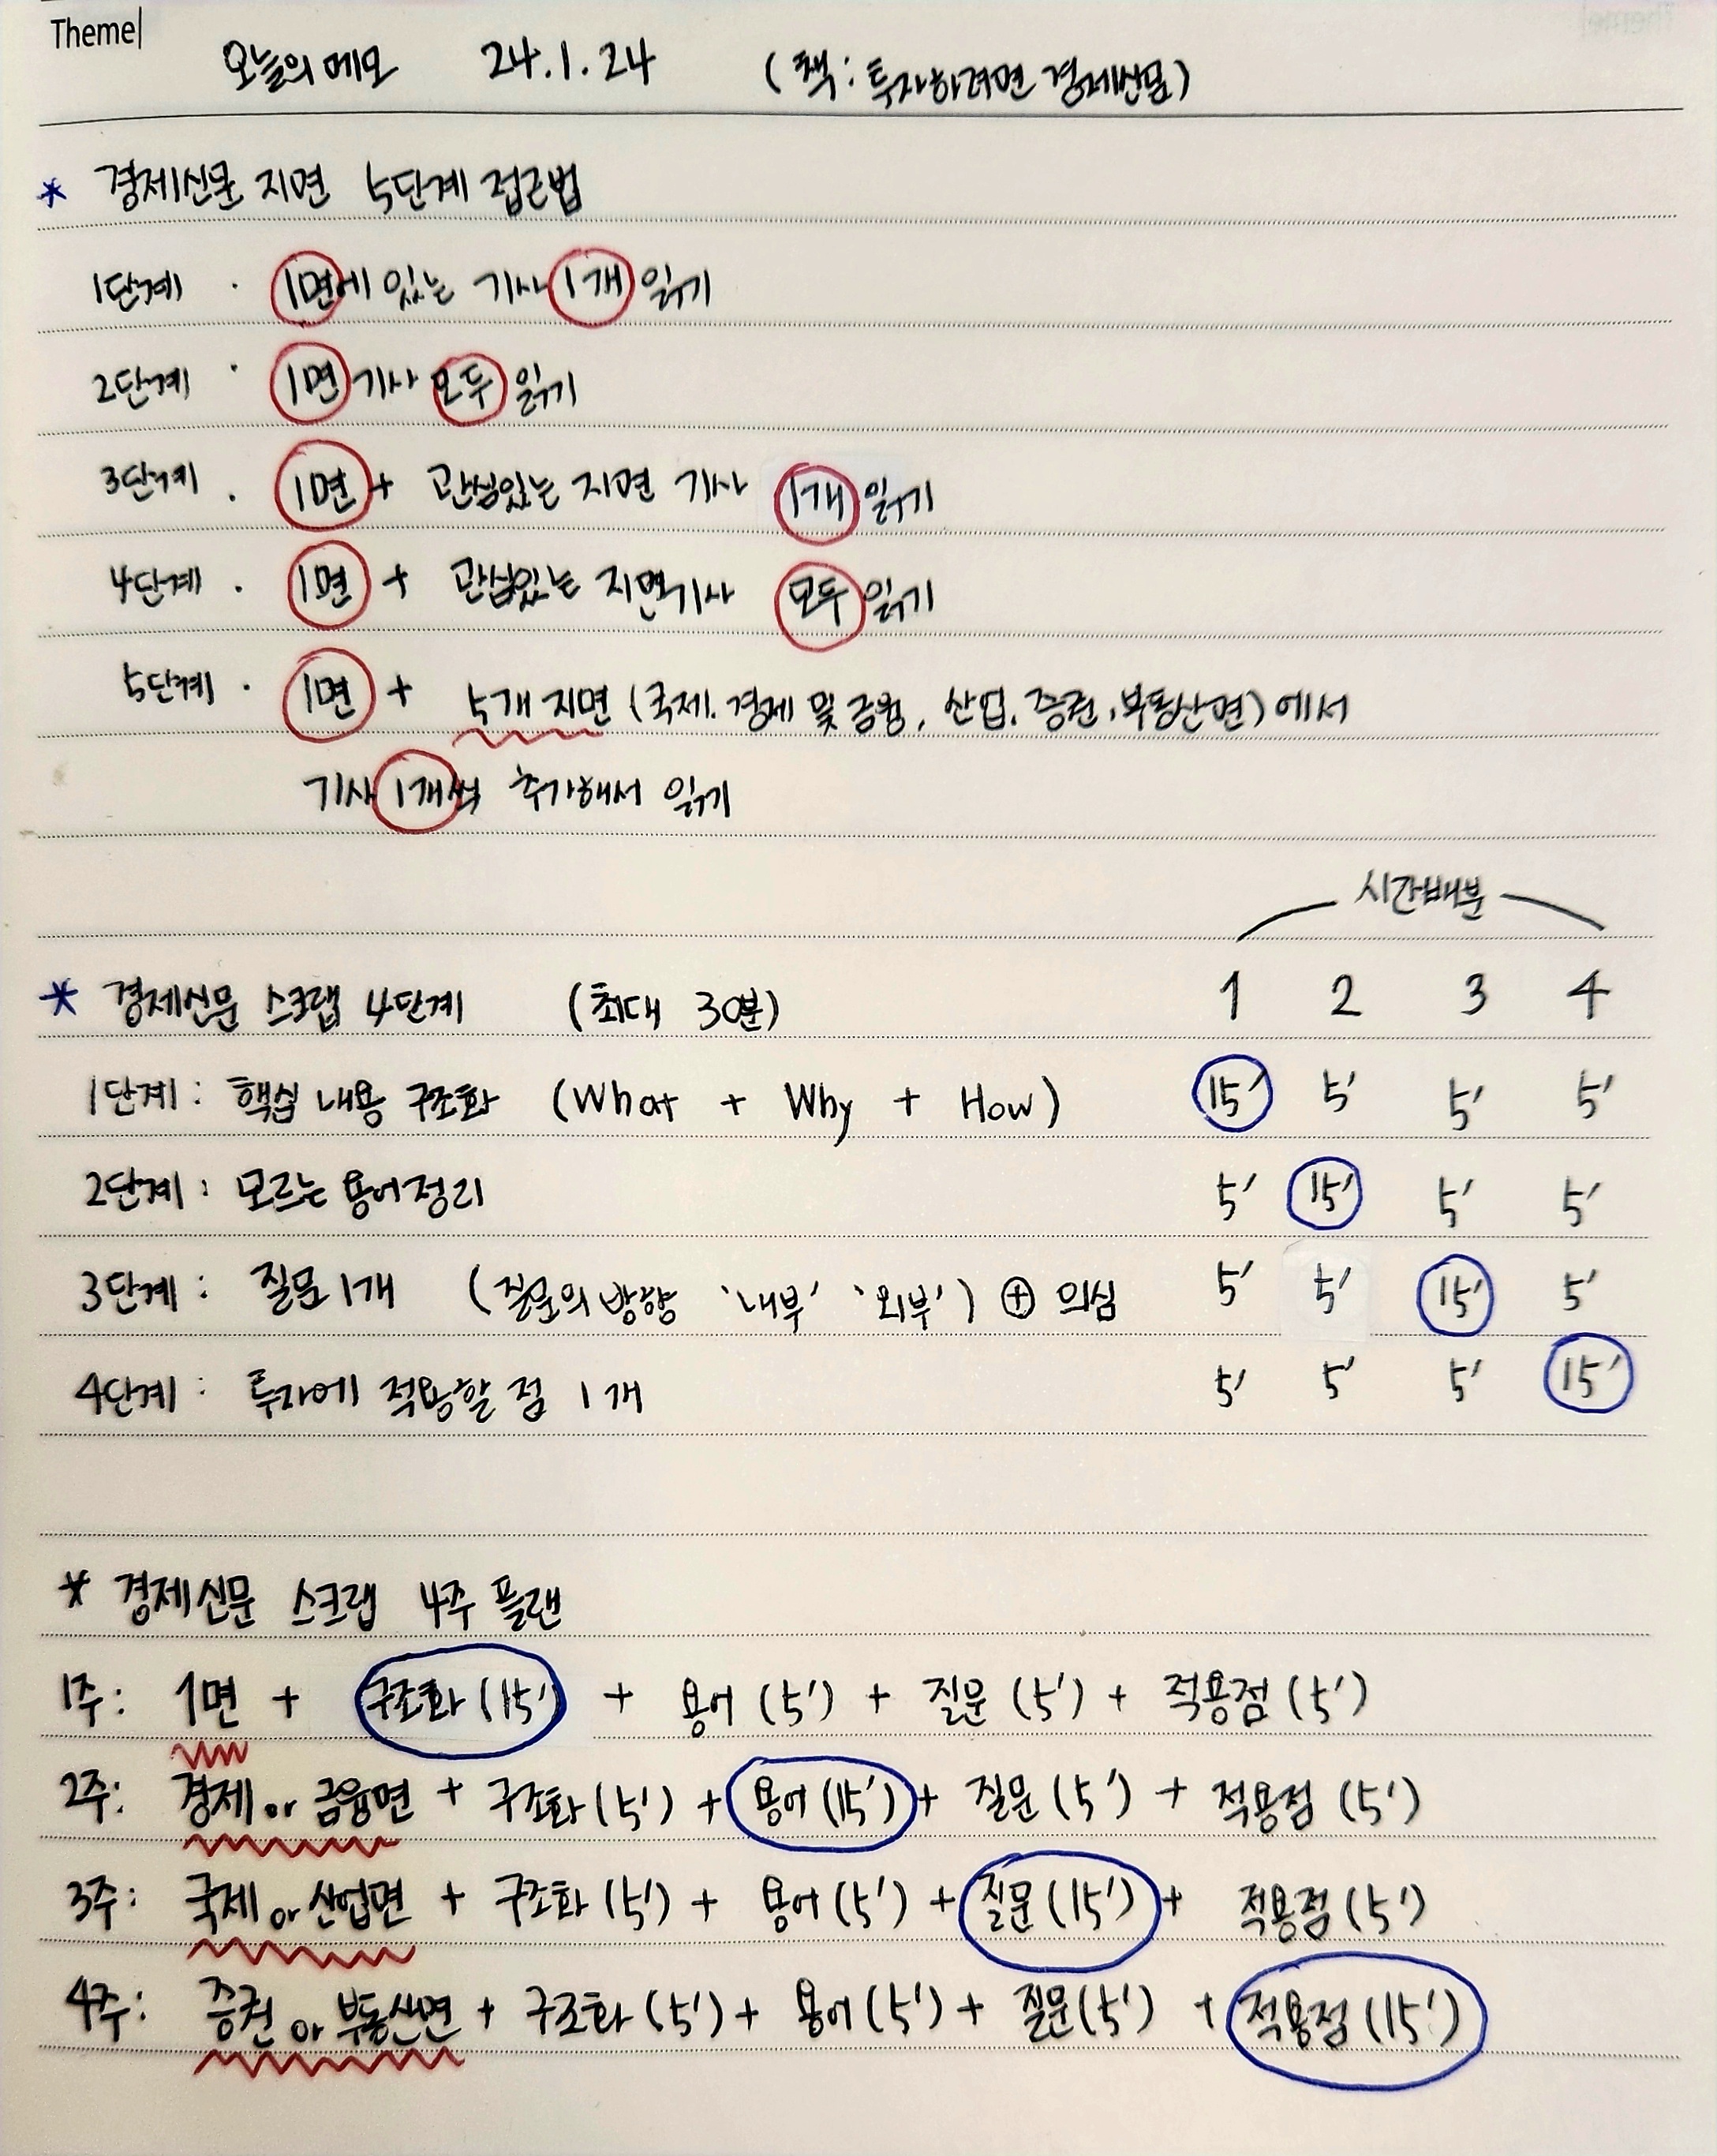 Theme
오늘의 메모 24.1.24 (책: 투자하려면 경제신문)
* 경제신문 지면 5단계 접근법
1단계 · 1면에 있는 기사 1개 읽기
2단계 · 1면 기사 모두 읽기
3단계 · 1면 + 관심있는 지면 기사 1개 읽기
4단계 · 1면 + 관심있는 지면기사 모두 읽기
5단계 · 1면 + 5개 지면 (국제, 경제 및 금융, 산업, 증권, 부동산면)에서
기사 1개씩 추가해서 읽기
시간배분
* 경제신문 스크랩 4단계 (최대 30분) 1 2 3 4
1단계: 핵심 내용 구조화 (What + Why + How) 15' 5' 5' 5'
2단계: 모르는 용어정리 5' 15' 5' 5'
3단계: 질문 1개 (질문의 방향 '내부' '외부') ⊕ 의심 5' 5' 15' 5'
4단계: 투자에 적용할 점 1개 5' 5' 5' 15'
* 경제신문 스크랩 4주 플랜
1주: 1면 + 구조화(15') + 용어(5') + 질문(5') + 적용점(5')
2주: 경제 or 금융면 + 구조화(5') + 용어(15') + 질문(5') + 적용점(5')
3주: 국제 or 산업면 + 구조화(5') + 용어(5') + 질문(15') + 적용점(5')
4주: 증권 or 부동산면 + 구조화(5') + 용어(5') + 질문(5') + 적용점(15')